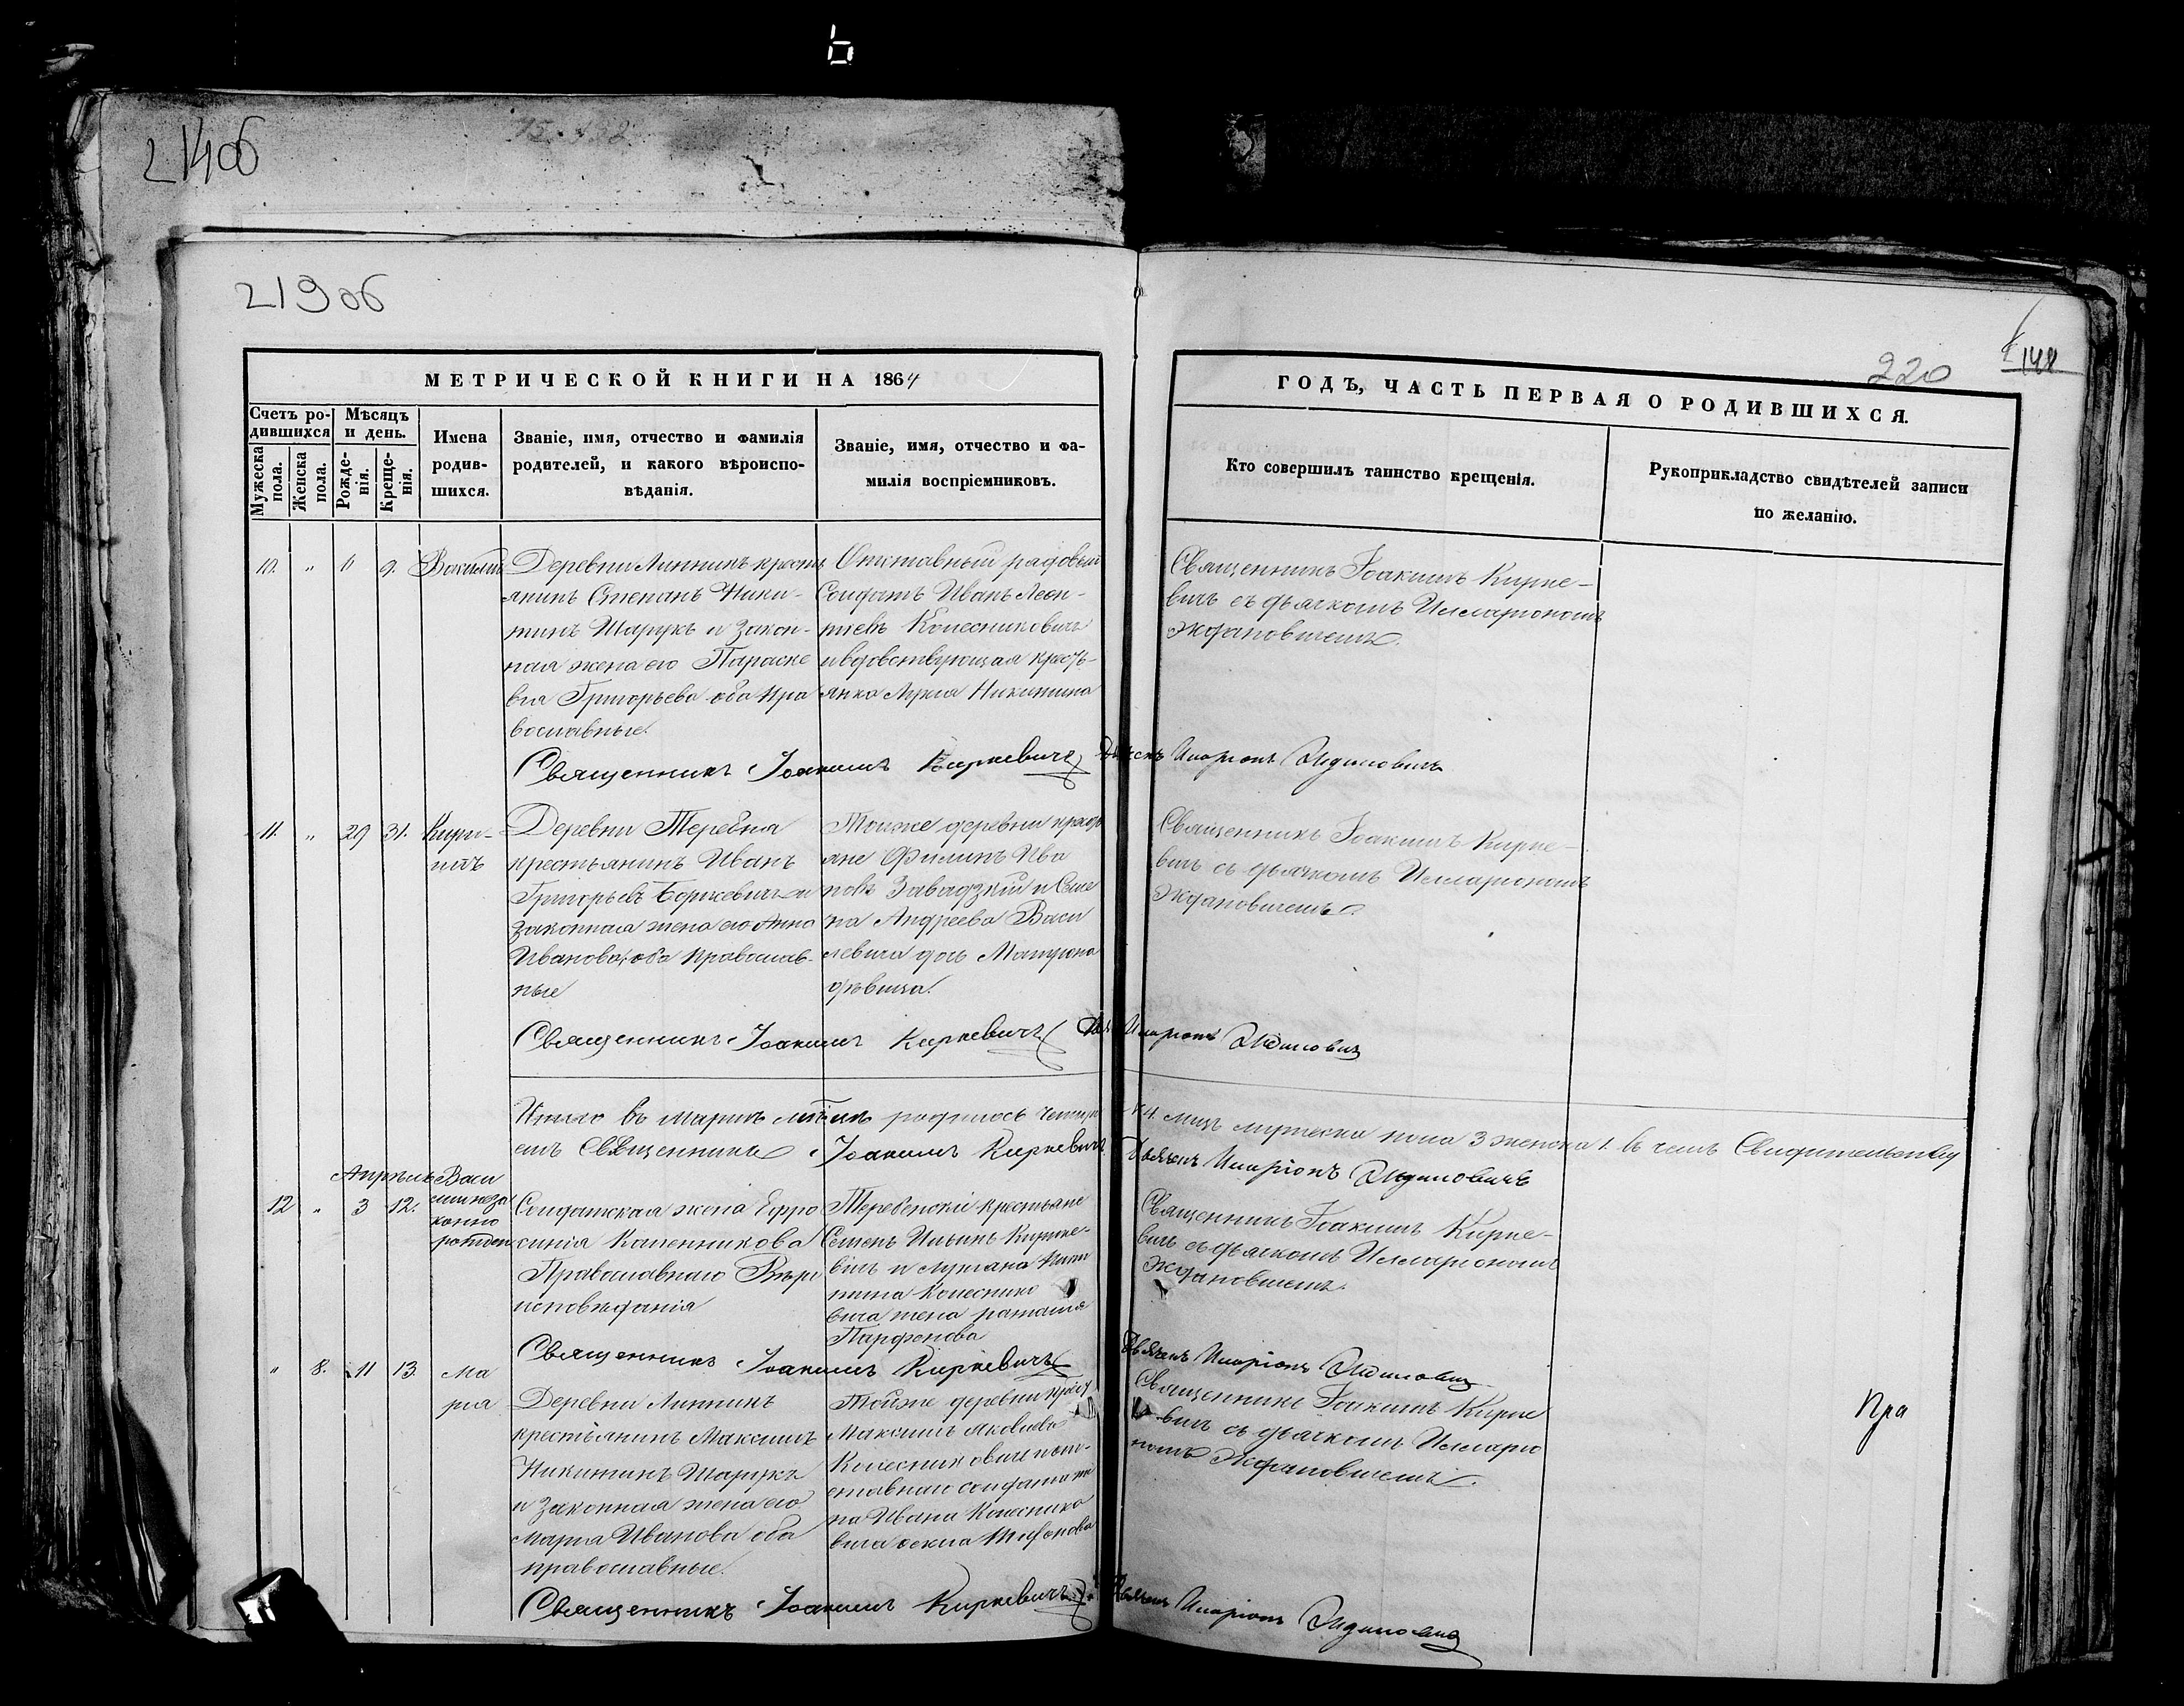 21406
219 об
220
148
МЕТРИЧЕСКОЙ КНИГИ НА 1864
ГОДЪ, ЧАСТЬ ПЕРВАЯ О РОДИВШИХСЯ.
Счетъ ро-
дившихся
Мужеска пола.
Женска пола.
Мѣсяцъ
и день.
Рожде-
нія.
Креще-
нія.
Имена
родив-
шихся.
Званіе, имя, отчество и фамилія
родителей, и какого вѣроиспо-
вѣданія.
Званіе, имя, отчество и фа-
милія воспріемниковъ.
Кто совершилъ таинство крещенія.
Рукоприкладство свидѣтелей записи
по желанію.
10. " 6 9. Василій
Деревни Линникъ кресть
янинъ Степанъ Ники-
тинъ Шарукъ и закон-
ная жена его Параске
вія Григорьева оба пра
вославные.
Отставный рядовый
Солдатъ Иванъ Леон-
тіевъ Колесниковичъ
и вдовствующая крестъ-
янка Лукія Никитина
Священникъ Іоакимъ Кирке-
вичъ съ дьячкомъ Илларіономъ
Ждановичемъ.
Священникъ Іоакимъ Киркевичъ
Дьячекъ Иларіонъ Ждановичъ
11. " 29 31. Кири-
иллъ
Деревни Теребня
крестьянинъ Иванъ
Григорьевъ Боркевичъ и
законная жена его Анна
Иванова, оба православ-
ные
Тойже деревни крестъ
яне Филипъ Ива
новъ Завадзкій и Семе
на Андреева Васи
левича дочь Матрона
дѣвица.
Священникъ Іоакимъ Кирке-
вичъ съ дьячкомъ Илларіономъ
Ждановичемъ.
Священникъ Іоакимъ Киркевичъ
Иларіонъ Ждановичъ
Итого въ Мартѣ мѣсяцѣ родилось четыре
4. лицъ мужеска пола 3 женска 1. въ чемъ Свидѣтельству
емъ Священникъ Іоакимъ Киркевичъ
Дьячекъ Иларіонъ Ждановичъ
Апрѣль
12 " 3 12. Васи
лій неза
конно
рожден
Солдатская жена Ефро
синія Колесникова
Православнаго Вѣро
исповѣданія
Теребенскіе крестьяне
Семенъ Ильинъ Кирке-
вичъ и
Колеснико
вича жена
Парфенова
Священникъ Іоакимъ Кирке-
вичъ съ дьячкомъ Илларіономъ
Ждановичемъ.
Священникъ Іоакимъ Киркевичъ
Дьячекъ Иларіонъ Ждановичъ
" 8. 11 13. Ма
рія
Деревни Линникъ
крестьянинъ Максимъ
Никитинъ Шарукъ
и законная жена его
Марія Иванова оба
православные.
Тойже деревни крест
Максимъ Яковлевъ
Колесниковичъ и от-
ставнаго солдата же
на Ивана Колеснико
вича
Священникъ Іоакимъ Кирке
вичъ съ дьячкомъ Илларіо
номъ Ждановичемъ.
Пра
Священникъ Іоакимъ Киркевичъ
Иларіонъ Ждановичъ